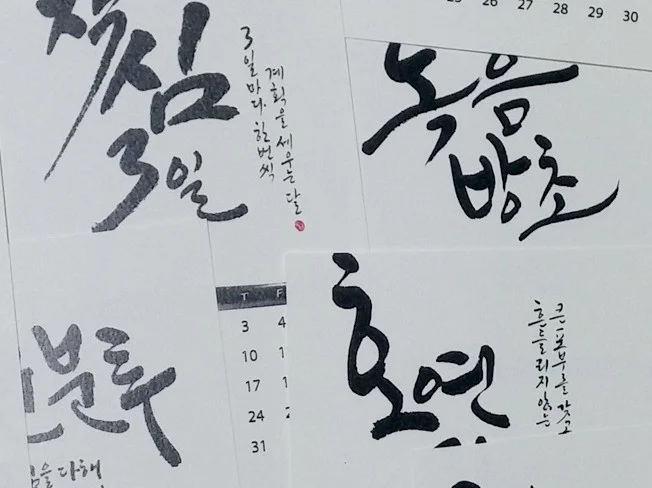 작심
3일
3일마다 한번씩
계획을 세우는 달
26 27 28 29 30
녹음
방초
분투
을 다해
T F
3 4
10
17
24
31
호연
큰 포부를 갖고
흔들리지 않는